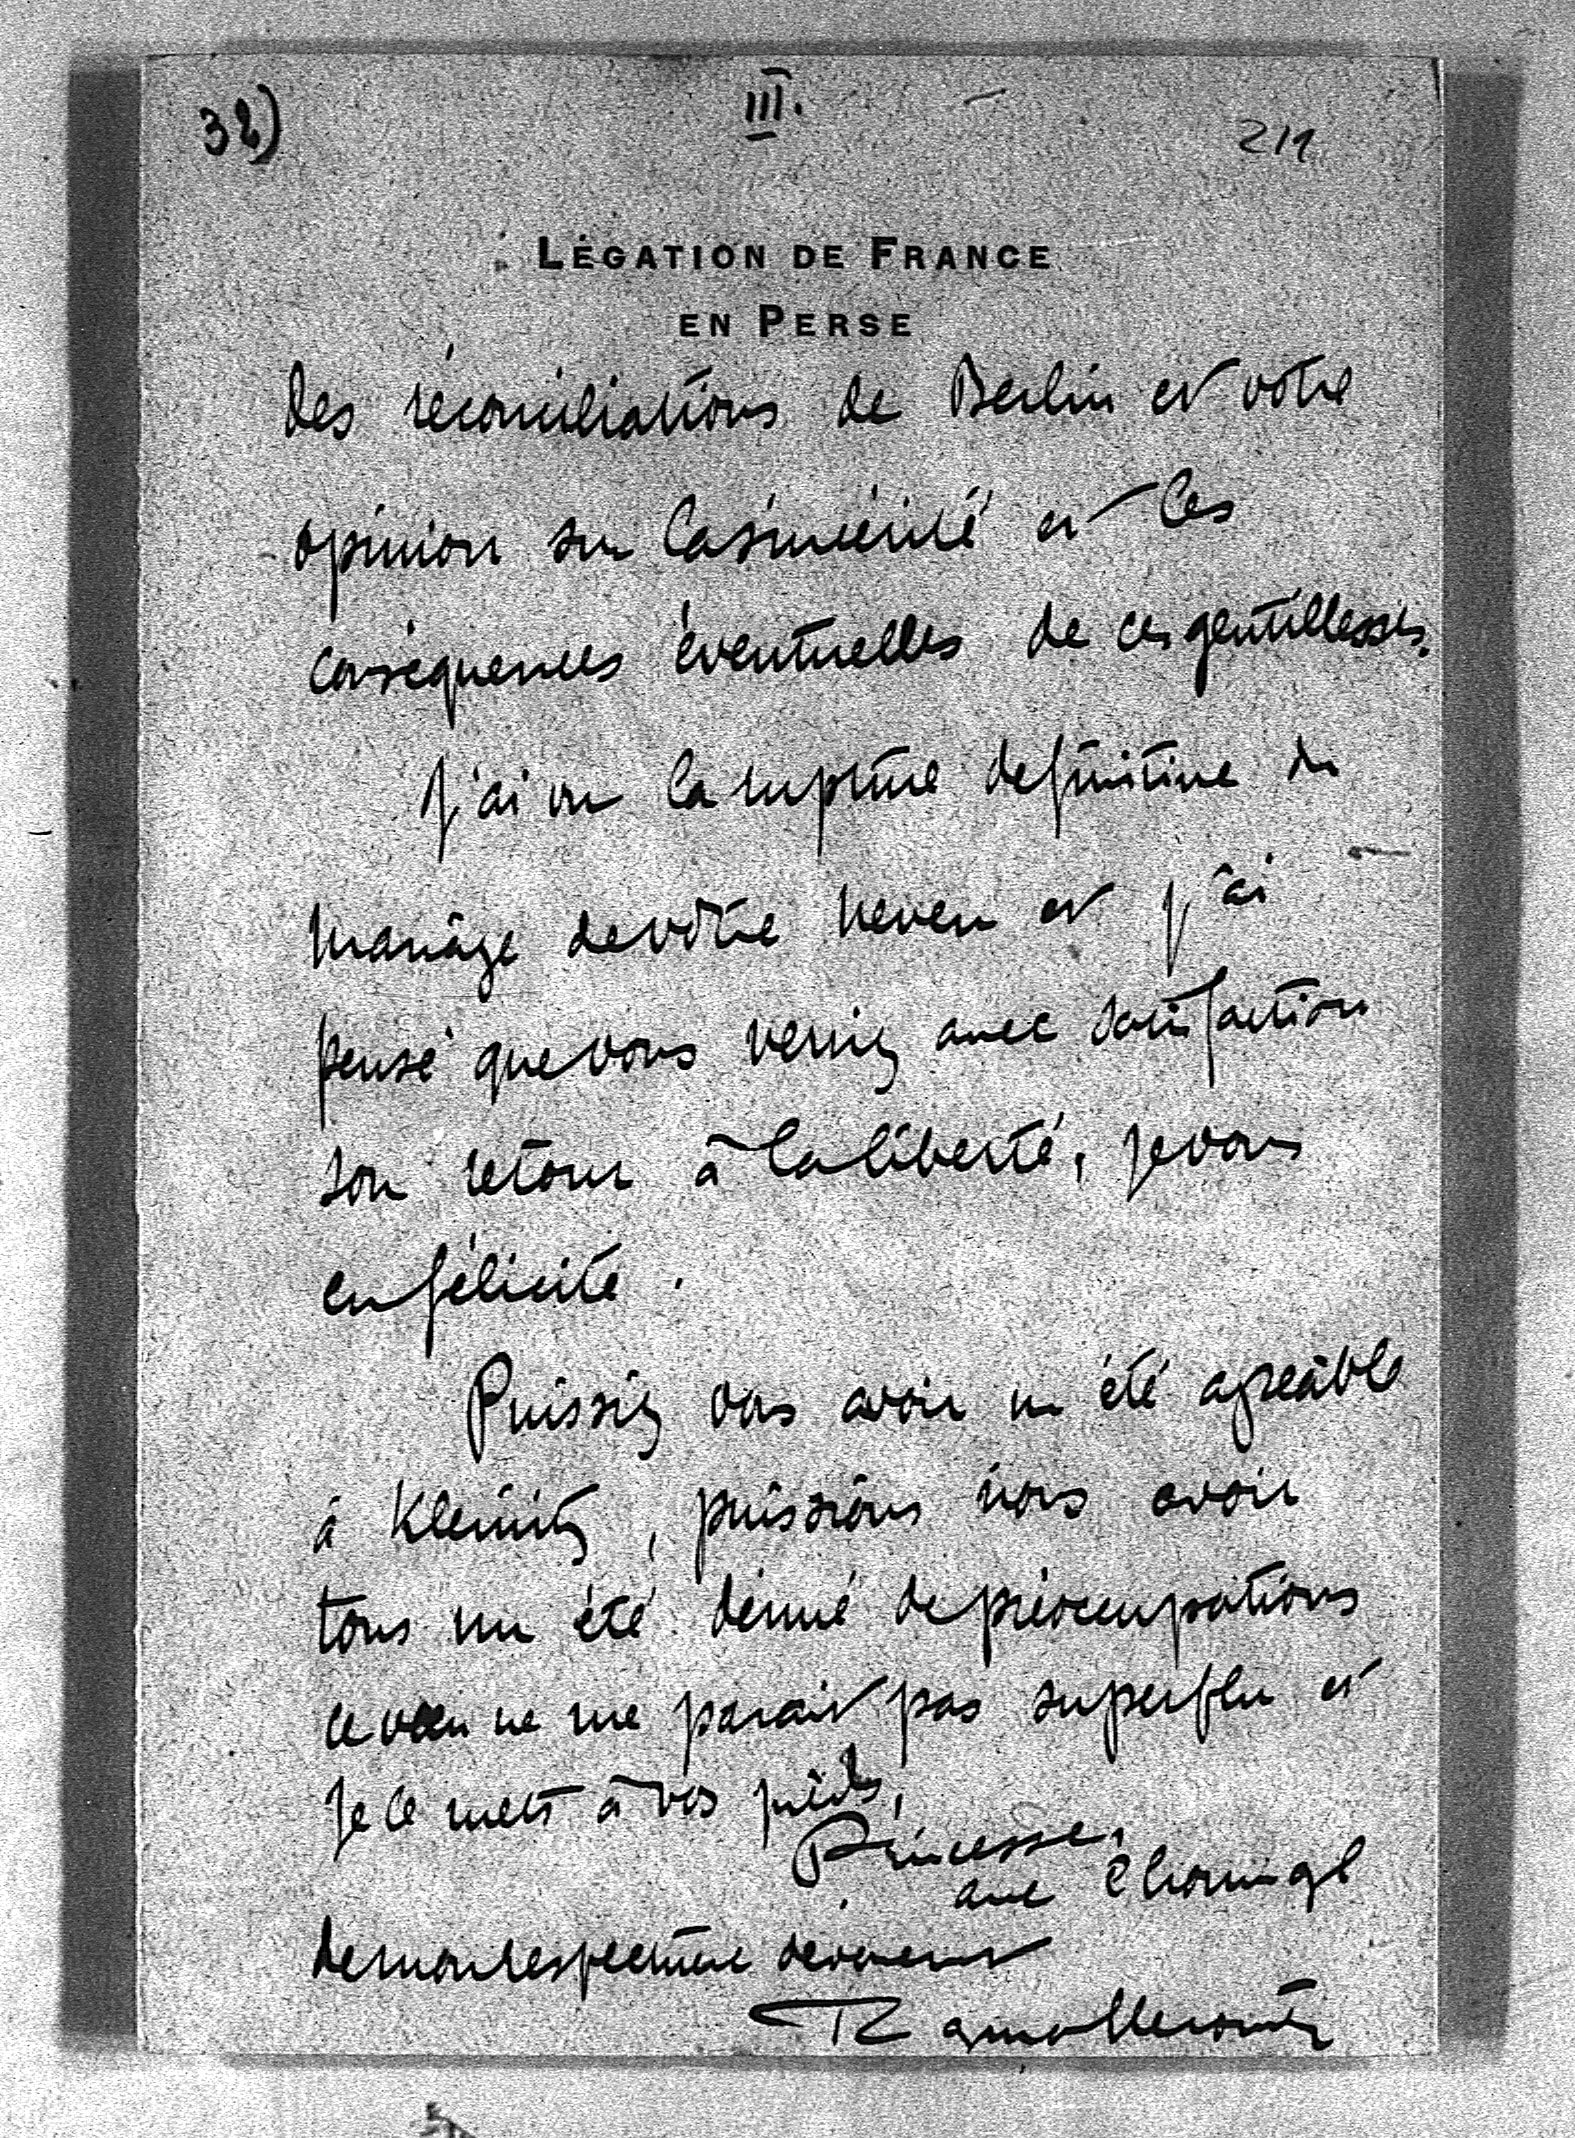 32)
III.
211
LÉGATION DE FRANCE
EN PERSE
des réconciliations de Berlin et votre
opinion sur la sincérité et les
conséquences éventuelles de ces gentillesses.
J'ai vu la rupture definitive du
mariage de votre neveu et j'ai
pensé que vous verriez avec satisfaction
son retour à la liberté, je vous
en félicite.
Puissiez vous avoir un été agréable
à Kleinitz, puissions nous avoir
tous un été dénué de préoccupations
ce voeu ne me parait pas superflu et
je le mets à vos pieds,
Princesse,
avec l'hommage
de mon respectueux dévouement